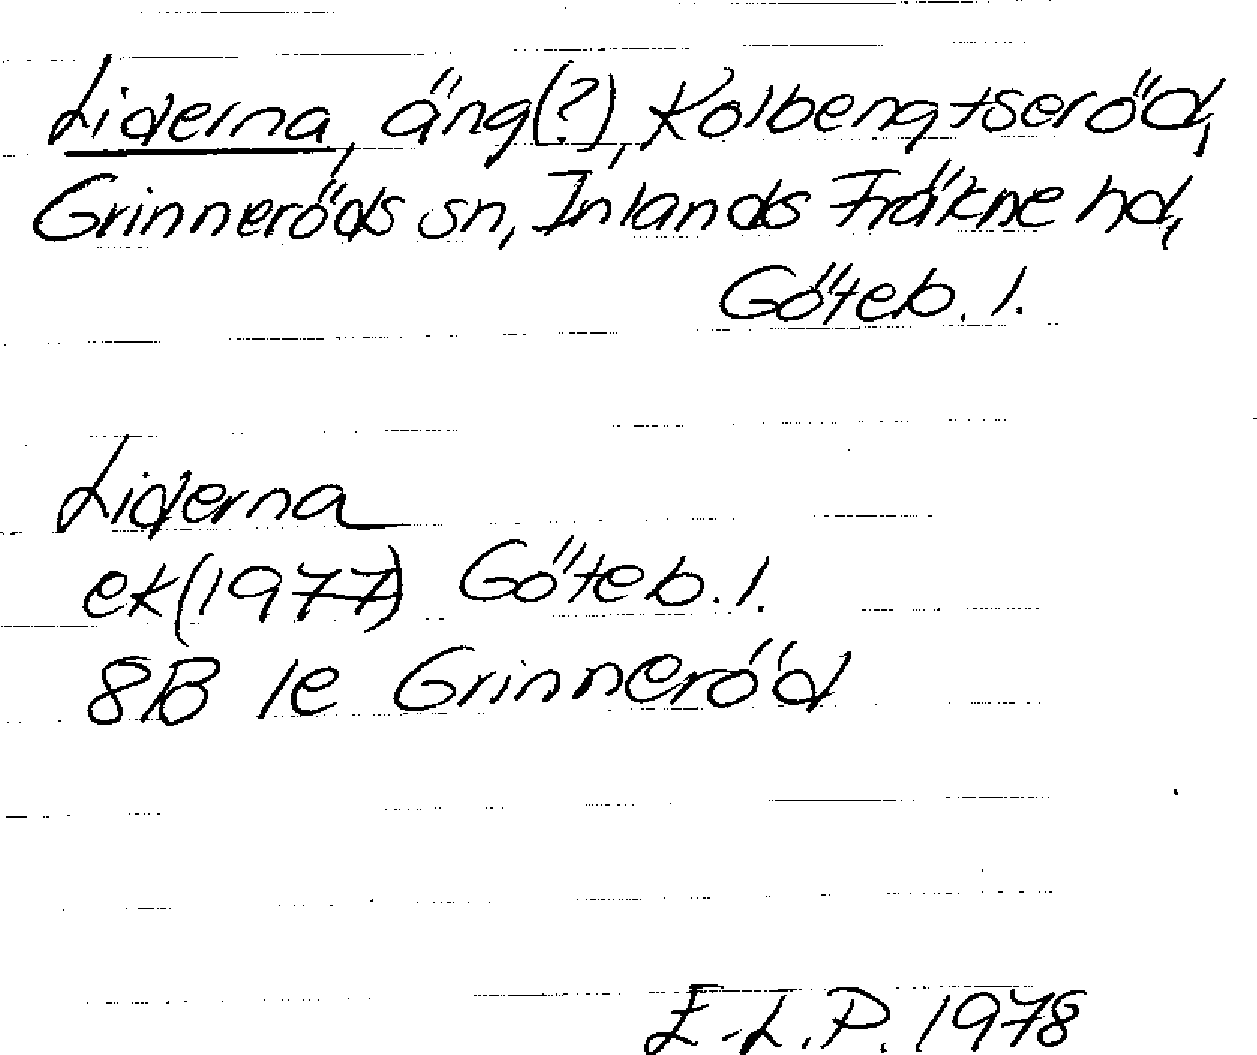 Liderna, äng(?), Kolbengtseröd,
Grinneröds sn, Inlands Fräkne hd,
Göteb. l.
Liderna
ek(1977) Göteb. l.
8B 1e Grinneröd
E.-L. P. 1978